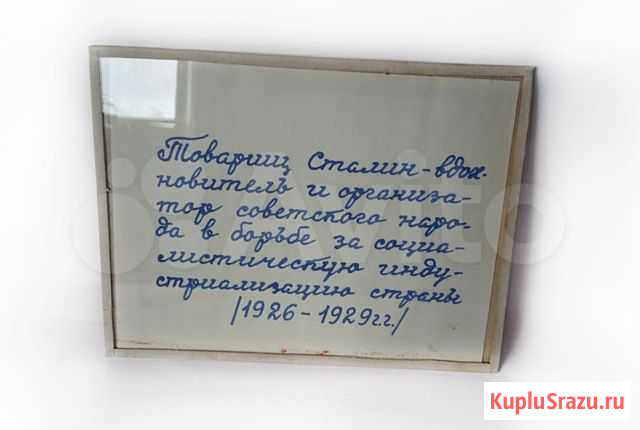 Товарищ Сталин - вдох-
новитель и организа-
тор советского наро-
да в борьбе за социа-
листическую инду-
стриализацию страны
/1926 - 1929 г.г./
Avito
KupluSrazu.ru